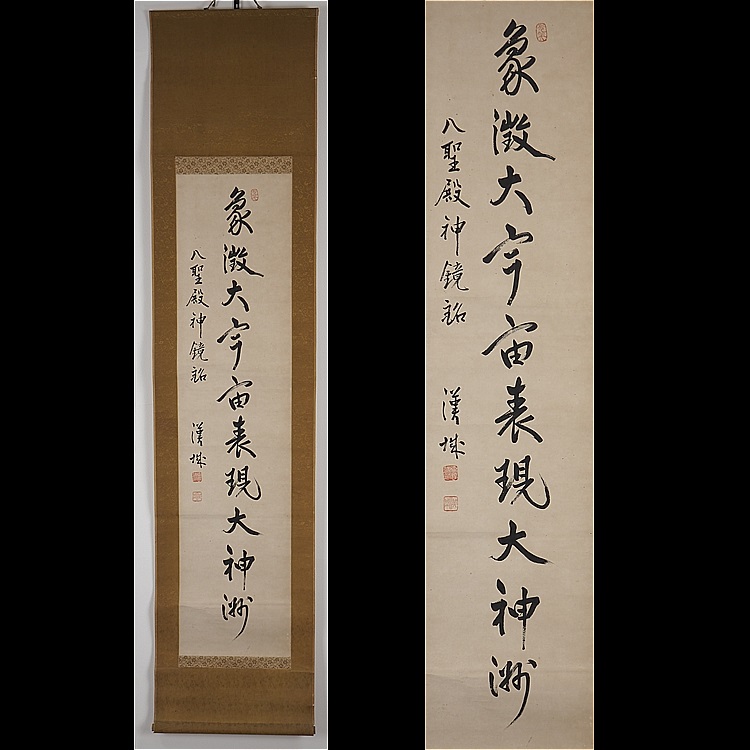 象徴大宇宙表現大神洲
八聖殿神鏡銘
漢城
象徴大宇宙表現大神洲
八聖殿神鏡銘
漢城